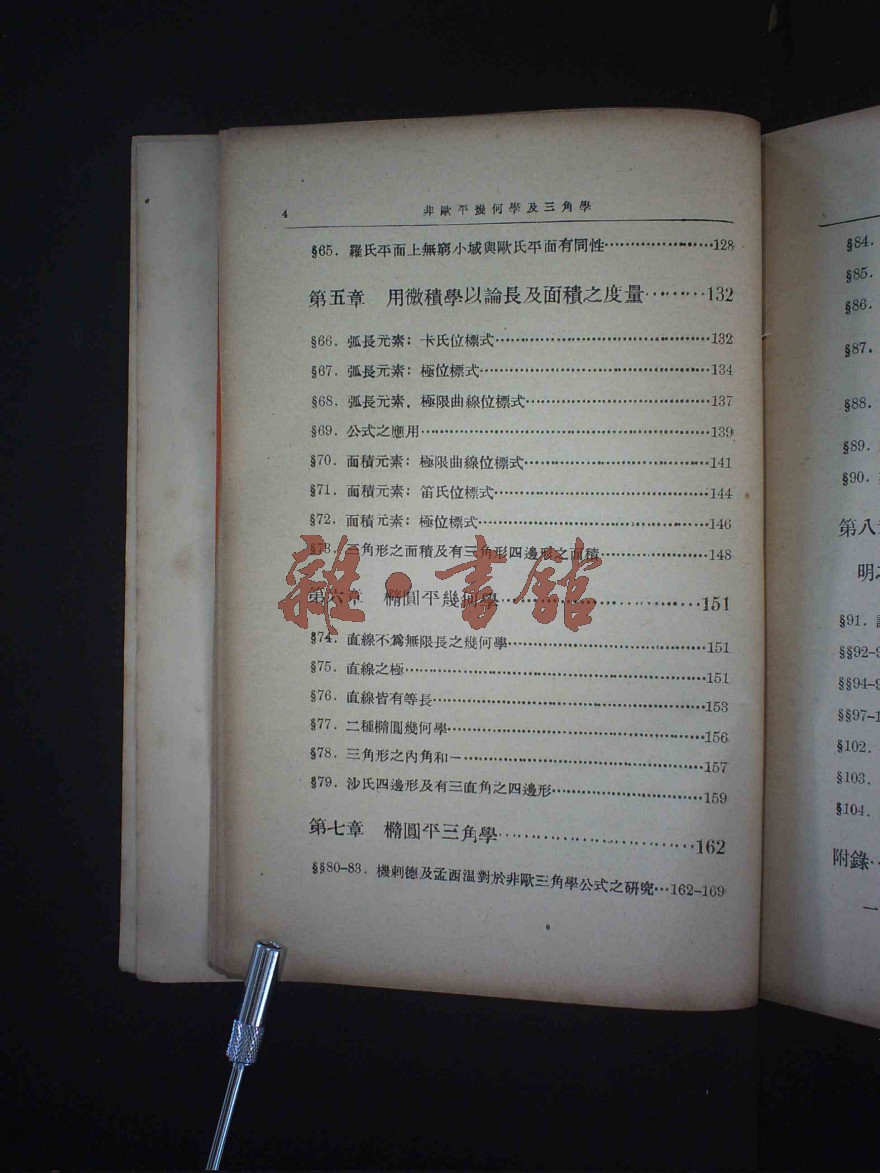 4
非歐平幾何學及三角學
§65. 羅氏平面上無窮小域與歐氏平面有同性…………………128
第五章 用微積學以論長及面積之度量………132
§66. 弧長元素: 卡氏位標式…………………132
§67. 弧長元素: 極位標式…………………134
§68. 弧長元素. 極限曲線位標式…………………137
§69. 公式之應用…………………139
§70. 面積元素: 極限曲線位標式…………………141
§71. 面積元素: 笛氏位標式…………………144
§72. 面積元素: 極位標式…………………146
§73. 三角形之面積及有三角形四邊形之面積…………………148
第六章 橢圓平幾何學…………………151
§74. 直線不爲無限長之幾何學…………………151
§75. 直線之極…………………151
§76. 直線皆有等長…………………153
§77. 二種橢圓幾何學…………………156
§78. 三角形之內角和…………………157
§79. 沙氏四邊形及有三直角之四邊形…………………159
第七章 橢圓平三角學…………………162
§§80-83. 機剌德及孟西溫對於非歐三角學公式之研究…162-169
雜·書館
§84.
§85.
§86.
§87.
§88.
§89.
§90.
第八
明
§91.
§§92-
§§94-
§§97-
§102.
§103.
§104.
附錄
一